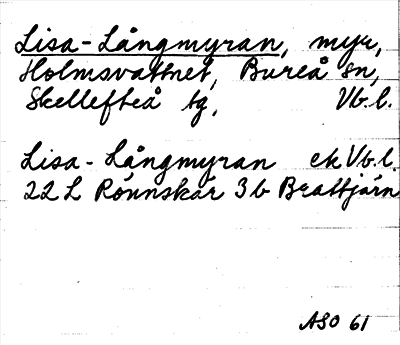 Lisa-Långmyran, myr,
Holmsvattnet, Bureå sn,
Skellefteå tg, Vb.l.
Lisa-Långmyran ek Vb.l.
22 L Rönnskär 3b Brattjärn
ASO 61